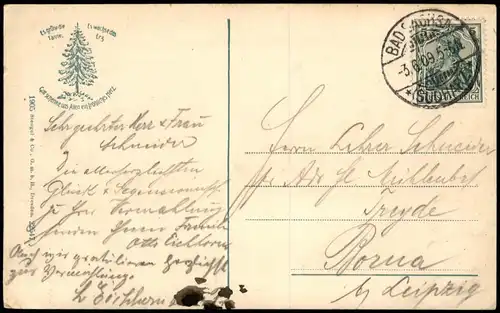 Es grüne die Tanne,
Es wachse das Erz
Gott schenke uns Allen ein fröhliches Herz.
1905 Stengel & Co., G. m. b. H., Dresden.
BAD SACHSA
-3.6.09. 5-6N.
* (SÜDHARZ)
Sehr geehrter Herr & Frau
Schneider
Die allerherzlichsten
Glück & Segenswünsche
zu Ihrer Vermählung
senden Ihnen
Otto Eichhorn
Auch wir gratulieren herzlichst
zur Vermählung.
Eichhorn
Herrn Lehrer Schneider
p. Adr.
Borna
b/ Leipzig